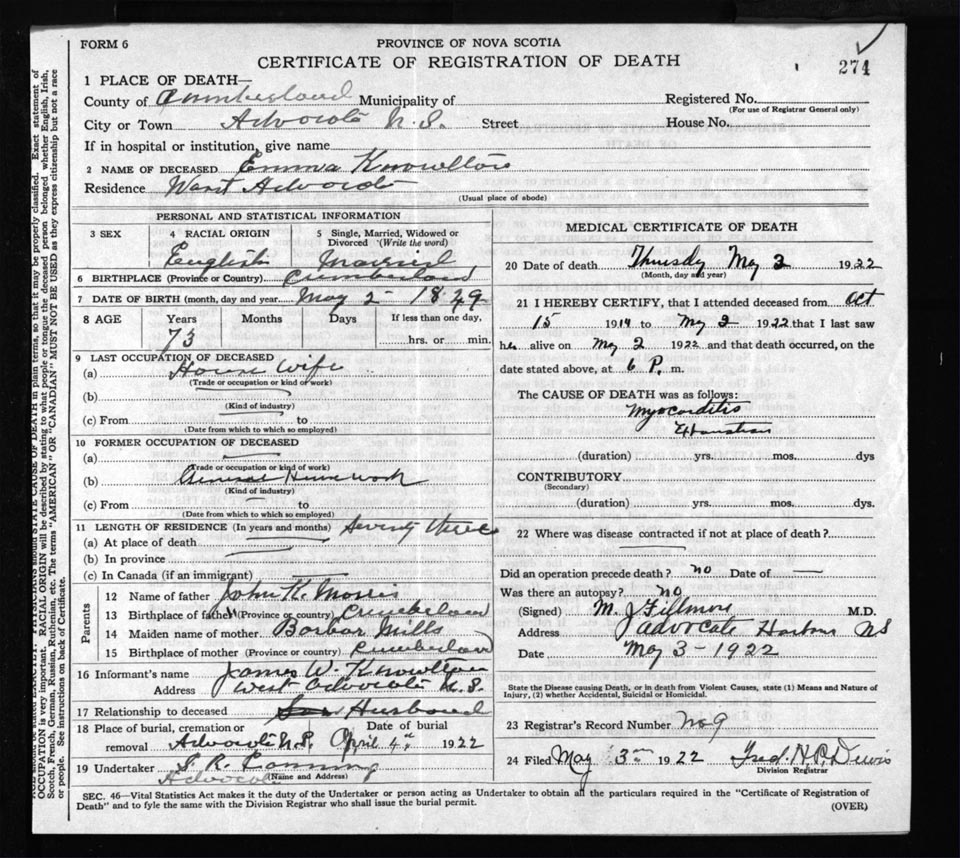 FORM 6
PROVINCE OF NOVA SCOTIA
CERTIFICATE OF REGISTRATION OF DEATH
274
1 PLACE OF DEATH—
County of Cumberland Municipality of
Registered No.
(For use of Registrar General only)
City or Town Advocate N.S. Street House No.
If in hospital or institution, give name
2 NAME OF DECEASED Emma Knowlton
Residence West Advocate
(Usual place of abode)
PERSONAL AND STATISTICAL INFORMATION
3 SEX
4 RACIAL ORIGIN
English
5 Single, Married, Widowed or
Divorced (Write the word)
Married
6 BIRTHPLACE (Province or Country) Cumberland
7 DATE OF BIRTH (month, day and year) May 2 - 1849
8 AGE Years Months Days If less than one day,
73 hrs. or min.
9 LAST OCCUPATION OF DECEASED
(a) House Wife
(Trade or occupation or kind of work)
(b)
(Kind of industry)
(c) From to
(Date from which to which so employed)
10 FORMER OCCUPATION OF DECEASED
(a)
(Trade or occupation or kind of work)
(b) General House work
(Kind of industry)
(c) From to
(Date from which to which so employed)
11 LENGTH OF RESIDENCE (In years and months) Seventy three
(a) At place of death
(b) In province
(c) In Canada (if an immigrant)
Parents
12 Name of father John K. Morris
13 Birthplace of father (Province or country) Cumberland
14 Maiden name of mother Barbar Mills
15 Birthplace of mother (Province or country) Cumberland
16 Informant's name James W. Knowlton
Address West Advocate N.S.
17 Relationship to deceased Son Husband
18 Place of burial, cremation or Date of burial
removal Advocate N.S. April 4th 1922
19 Undertaker
Advocate (Name and Address)
MEDICAL CERTIFICATE OF DEATH
20 Date of death Thursdy May 3 1922
(Month, day and year)
21 I HEREBY CERTIFY, that I attended deceased from Oct
15 1914 to May 3 1922 that I last saw
her alive on May 2 1922 and that death occurred, on the
date stated above, at 6 P. m.
The CAUSE OF DEATH was as follows:
Myocarditis
Exhaustion
(duration) yrs. mos. dys
CONTRIBUTORY
(Secondary)
(duration) yrs. mos. dys.
22 Where was disease contracted if not at place of death?
Did an operation precede death? no Date of —
Was there an autopsy? no
(Signed) M. J Fillmore M.D.
Address Advocate Harbour NS
Date May 3 - 1922
State the Disease causing Death, or in death from Violent Causes, state (1) Means and Nature of
Injury, (2) whether Accidental, Suicidal or Homicidal.
23 Registrar's Record Number No 9
24 Filed May 3rd 1922 Fred. H. P. Dewis
Division Registrar
SEC. 46—Vital Statistics Act makes it the duty of the Undertaker or person acting as Undertaker to obtain all the particulars required in the "Certificate of Registration of
Death" and to fyle the same with the Division Registrar who shall issue the burial permit.
(OVER)
STATE CAUSE OF DEATH in plain terms, so that it may be properly classified. Exact statement of
OCCUPATION is very important. RACIAL ORIGIN will be described by stating to what people or tongue the deceased person belonged whether English, Irish,
Scotch, French, German, Russian, Ruthenian, etc. The terms "AMERICAN" OR "CANADIAN" MUST NOT BE USED as they express citizenship but not a race
or people. See instructions on back of Certificate.